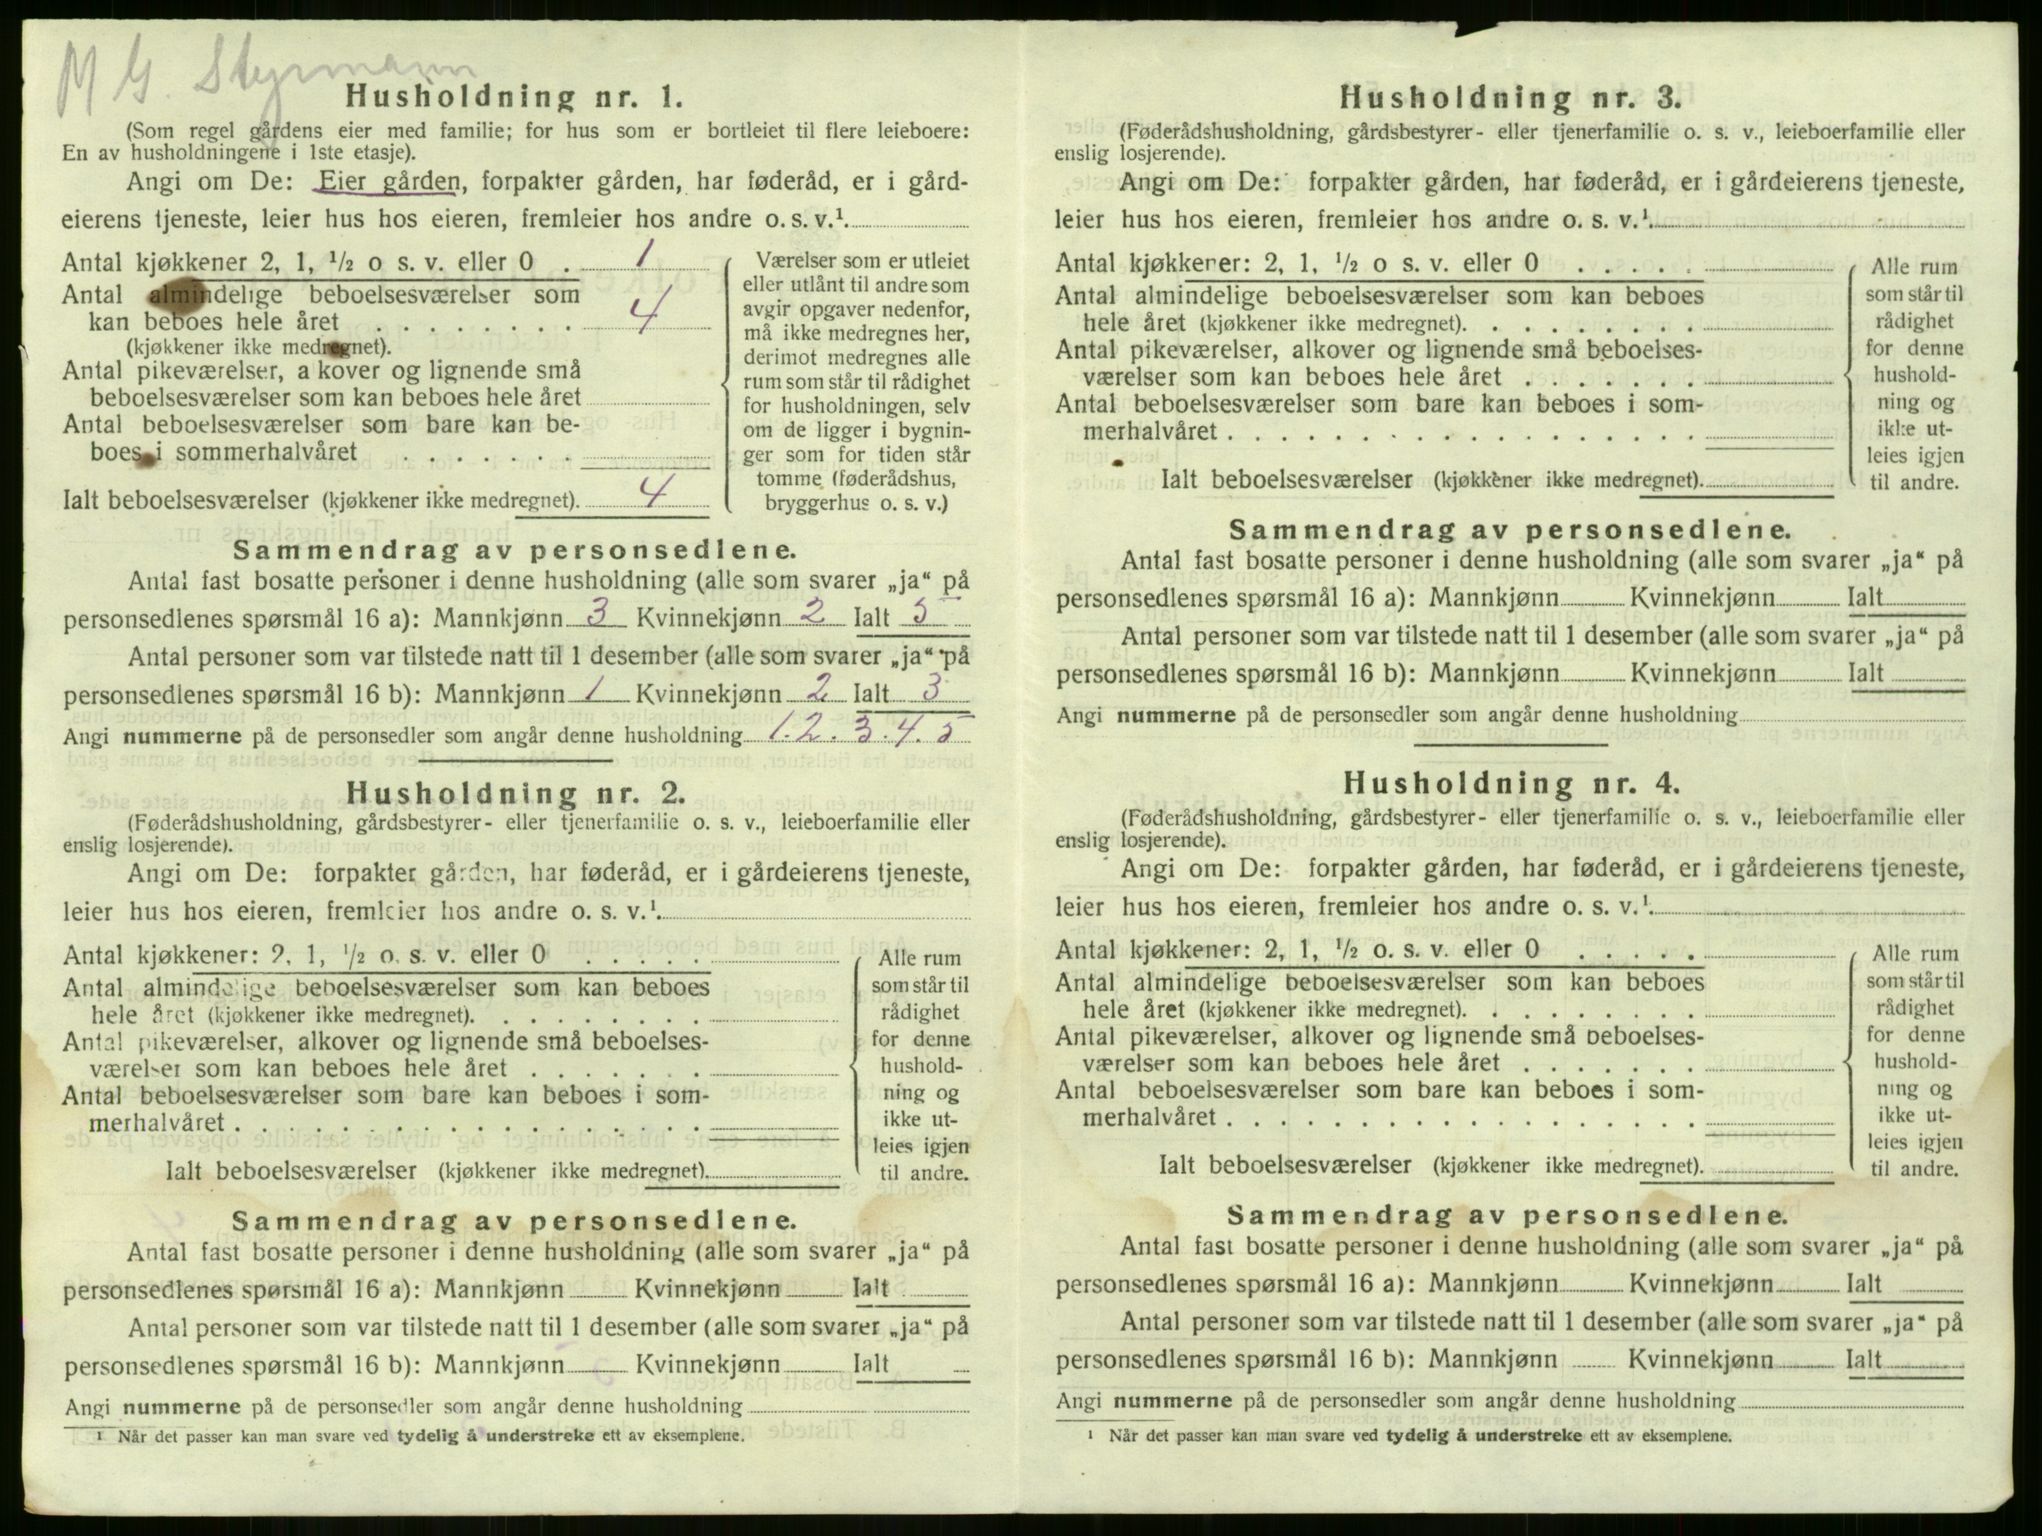 M G. Styrmann
Husholdning nr. 1.
(Som regel gårdens eier med familie; for hus som er bortleiet til flere leieboere:
En av husholdningene i 1ste etasje).
Angi om De: Eier gården, forpakter gården, har føderåd, er i gård-
eierens tjeneste, leier hus hos eieren, fremleier hos andre o. s. v.¹
Antal kjøkkener 2, 1, ½ o s. v. eller 0 . 1
Antal almindelige beboelsesværelser som
kan beboes hele året . . . . . . . . 4
(kjøkkener ikke medregnet).
Antal pikeværelser, a kover og lignende små
beboelsesværelser som kan beboes hele året
Antal beboelsesværelser som bare kan be-
boes i sommerhalvåret . . . . . . .
Ialt beboelsesværelser (kjøkkener ikke medregnet). 4
Værelser som er utleiet
eller utlånt til andre som
avgir opgaver nedenfor,
må ikke medregnes her,
derimot medregnes alle
rum som står til rådighet
for husholdningen, selv
om de ligger i bygnin-
ger som for tiden står
tomme (føderådshus,
bryggerhus o. s. v.)
Sammendrag av personsedlene.
Antal fast bosatte personer i denne husholdning (alle som svarer „ja“ på
personsedlenes spørsmål 16 a): Mannkjønn 3 Kvinnekjønn 2 Ialt 5
Antal personer som var tilstede natt til 1 desember (alle som svarer „ja“ på
personsedlenes spørsmål 16 b): Mannkjønn 1 Kvinnekjønn 2 Ialt 3
Angi nummerne på de personsedler som angår denne husholdning 1.2.3.4.5
Husholdning nr. 2.
(Føderådshusholdning, gårdsbestyrer- eller tjenerfamilie o. s. v., leieboerfamilie eller
enslig losjerende).
Angi om De: forpakter gården, har føderåd, er i gårdeierens tjeneste,
leier hus hos eieren, fremleier hos andre o. s. v.¹
Antal kjøkkener: 2, 1, ½ o. s. v. eller 0 . . . . .
Antal almindelige beboelsesværelser som kan beboes
hele året (kjøkkener ikke medregnet). . . . . . . . .
Antal pikeværelser, alkover og lignende små beboelses-
værelser som kan beboes hele året . . . . . . .
Antal beboelsesværelser som bare kan beboes i som-
merhalvåret . . . . . . . . . . . . . . . . . .
Ialt beboelsesværelser (kjøkkener ikke medregnet).
Alle rum
som står til
rådighet
for denne
hushold-
ning og
ikke ut-
leies igjen
til andre.
Sammendrag av personsedlene.
Antal fast bosatte personer i denne husholdning (alle som svarer „ja“ på
personsedlenes spørsmål 16 a): Mannkjønn Kvinnekjønn Ialt
Antal personer som var tilstede natt til 1 desember (alle som svarer „ja“ på
personsedlenes spørsmål 16 b): Mannkjønn Kvinnekjønn Ialt
Angi nummerne på de personsedler som angår denne husholdning
¹ Når det passer kan man svare ved tydelig å understreke ett av eksemplene.
Husholdning nr. 3.
(Føderådshusholdning, gårdsbestyrer- eller tjenerfamilie o. s. v., leieboerfamilie eller
enslig losjerende).
Angi om De: forpakter gården, har føderåd, er i gårdeierens tjeneste,
leier hus hos eieren, fremleier hos andre o. s. v.¹
Antal kjøkkener: 2, 1, ½ o s. v. eller 0 . . . . .
Antal almindelige beboelsesværelser som kan beboes
hele året (kjøkkener ikke medregnet). . . . . . . . .
Antal pikeværelser, alkover og lignende små beboelses-
værelser som kan beboes hele året . . . . . . .
Antal beboelsesværelser som bare kan beboes i som-
merhalvåret . . . . . . . . . . . . . . . . . .
Ialt beboelsesværelser (kjøkkener ikke medregnet).
Alle rum
som står til
rådighet
for denne
hushold-
ning og
ikke ut-
leies igjen
til andre.
Sammendrag av personsedlene.
Antal fast bosatte personer i denne husholdning (alle som svarer „ja“ på
personsedlenes spørsmål 16 a): Mannkjønn Kvinnekjønn Ialt
Antal personer som var tilstede natt til 1 desember (alle som svarer „ja“ på
personsedlenes spørsmål 16 b): Mannkjønn Kvinnekjønn Ialt
Angi nummerne på de personsedler som angår denne husholdning
Husholdning nr. 4.
(Føderådshusholdning, gårdsbestyrer- eller tjenerfamilie o. s. v., leieboerfamilie eller
enslig losjerende).
Angi om De: forpakter gården, har føderåd, er i gårdeierens tjeneste,
leier hus hos eieren, fremleier hos andre o. s. v.¹
Antal kjøkkener: 2, 1, ½ o. s. v. eller 0 . . . . .
Antal almindelige beboelsesværelser som kan beboes
hele året (kjøkkener ikke medregnet). . . . . . . . .
Antal pikeværelser, alkover og lignende små beboelses-
værelser som kan beboes hele året . . . . . . .
Antal beboelsesværelser som bare kan beboes i som-
merhalvåret . . . . . . . . . . . . . . . . . .
Ialt beboelsesværelser (kjøkkener ikke medregnet).
Alle rum
som står til
rådighet
for denne
hushold-
ning og
ikke ut-
leies igjen
til andre.
Sammendrag av personsedlene.
Antal fast bosatte personer i denne husholdning (alle som svarer „ja“ på
personsedlenes spørsmål 16 a): Mannkjønn Kvinnekjønn Ialt
Antal personer som var tilstede natt til 1 desember (alle som svarer „ja“ på
personsedlenes spørsmål 16 b): Mannkjønn Kvinnekjønn Ialt
Angi nummerne på de personsedler som angår denne husholdning
¹ Når det passer kan man svare ved tydelig å understreke ett av eksemplene.